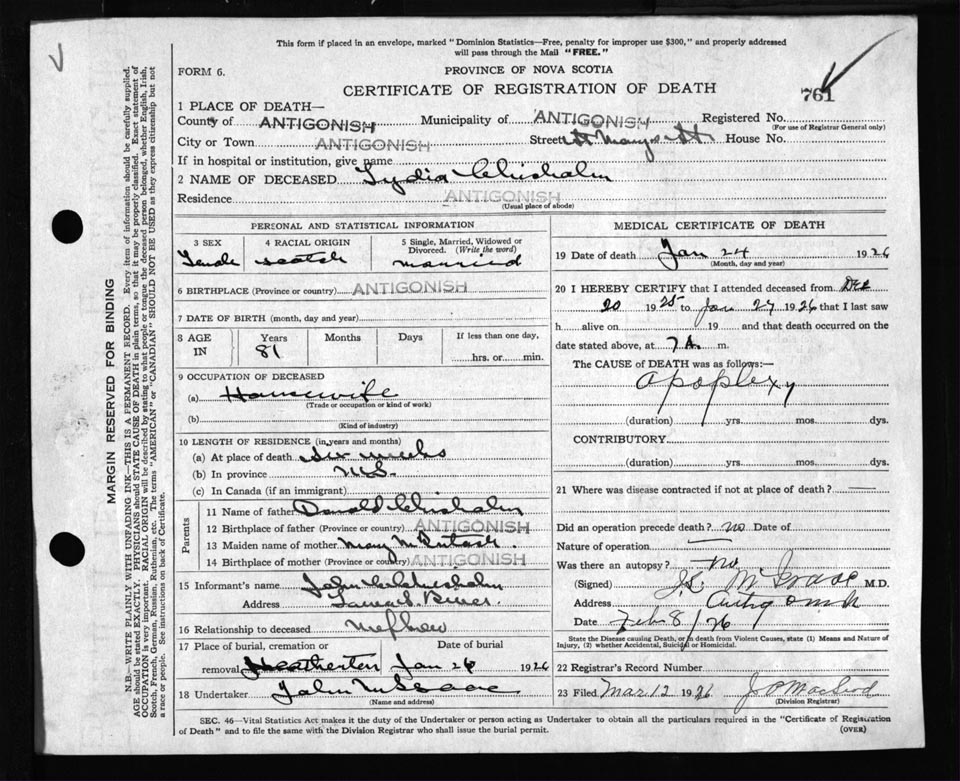 This form if placed in an envelope, marked "Dominion Statistics—Free, penalty for improper use $300," and properly addressed
will pass through the Mail "FREE."
FORM 6.
PROVINCE OF NOVA SCOTIA
CERTIFICATE OF REGISTRATION OF DEATH
761
1 PLACE OF DEATH—
County of ANTIGONISH Municipality of ANTIGONISH Registered No.
(For use of Registrar General only)
City or Town ANTIGONISH Street St Marys St House No.
If in hospital or institution, give name
2 NAME OF DECEASED Lydia Chisholm
Residence ANTIGONISH
(Usual place of abode)
PERSONAL AND STATISTICAL INFORMATION
3 SEX 4 RACIAL ORIGIN 5 Single, Married, Widowed or
Divorced. (Write the word)
Female Scotch married
6 BIRTHPLACE (Province or country) ANTIGONISH
7 DATE OF BIRTH (month, day and year)
8 AGE IN Years Months Days If less than one day,
81 hrs. or min.
9 OCCUPATION OF DECEASED
(a) Housewife
(Trade or occupation or kind of work)
(b)
(Kind of industry)
10 LENGTH OF RESIDENCE (in years and months)
(a) At place of death Six weeks
(b) In province N.S.
(c) In Canada (if an immigrant)
Parents
11 Name of father Donald Chisholm
12 Birthplace of father (Province or country) ANTIGONISH
13 Maiden name of mother Mary McIntosh
14 Birthplace of mother (Province or country) ANTIGONISH
15 Informant's name John Chisholm
Address River
16 Relationship to deceased nephew
17 Place of burial, cremation or Date of burial
removal Heatherton Jan 26 1926
18 Undertaker John McIsaac
(Name and address)
MEDICAL CERTIFICATE OF DEATH
19 Date of death Jan 24 1926
(Month, day and year)
20 I HEREBY CERTIFY that I attended deceased from Dec
20 1925 to Jan 24 1926 that I last saw
h alive on 19 and that death occurred on
date stated above, at 7 A. m.
The CAUSE of DEATH was as follows:
Apoplexy
(duration) yrs. mos. dys.
CONTRIBUTORY
(duration) yrs. mos. dys.
21 Where was disease contracted if not at place of death? —
Did an operation precede death? no Date of
Nature of operation —
Was there an autopsy? no
(Signed) M.D.
Address Antigonish
Date Feb 8/26
State the Disease causing Death, or in death from Violent Causes, state (1) Means and Nature of
Injury, (2) whether Accidental, Suicidal or Homicidal.
22 Registrar's Record Number
23 Filed Mar 12 1926 J P MacLeod
(Division Registrar)
SEC. 46—Vital Statistics Act makes it the duty of the Undertaker or person acting as Undertaker to obtain all the particulars required in the "Certificate of Registration
of Death" and to file the same with the Division Registrar who shall issue the burial permit. (OVER)
MARGIN RESERVED FOR BINDING
N.B.—WRITE PLAINLY WITH UNFADING INK—THIS IS A PERMANENT RECORD. Every item of information should be carefully supplied.
AGE should be stated EXACTLY. PHYSICIANS should STATE CAUSE OF DEATH in plain terms, so that it may be properly classified. Exact statement of
OCCUPATION is very important. RACIAL ORIGIN will be described by stating to what people or tongue the deceased person belonged, whether English, Irish,
Scotch, French, German, Russian, Ruthenian, etc. The terms "AMERICAN" or "CANADIAN" SHOULD NOT BE USED as they express citizenship but not
a race or people. See instructions on back of Certificate.